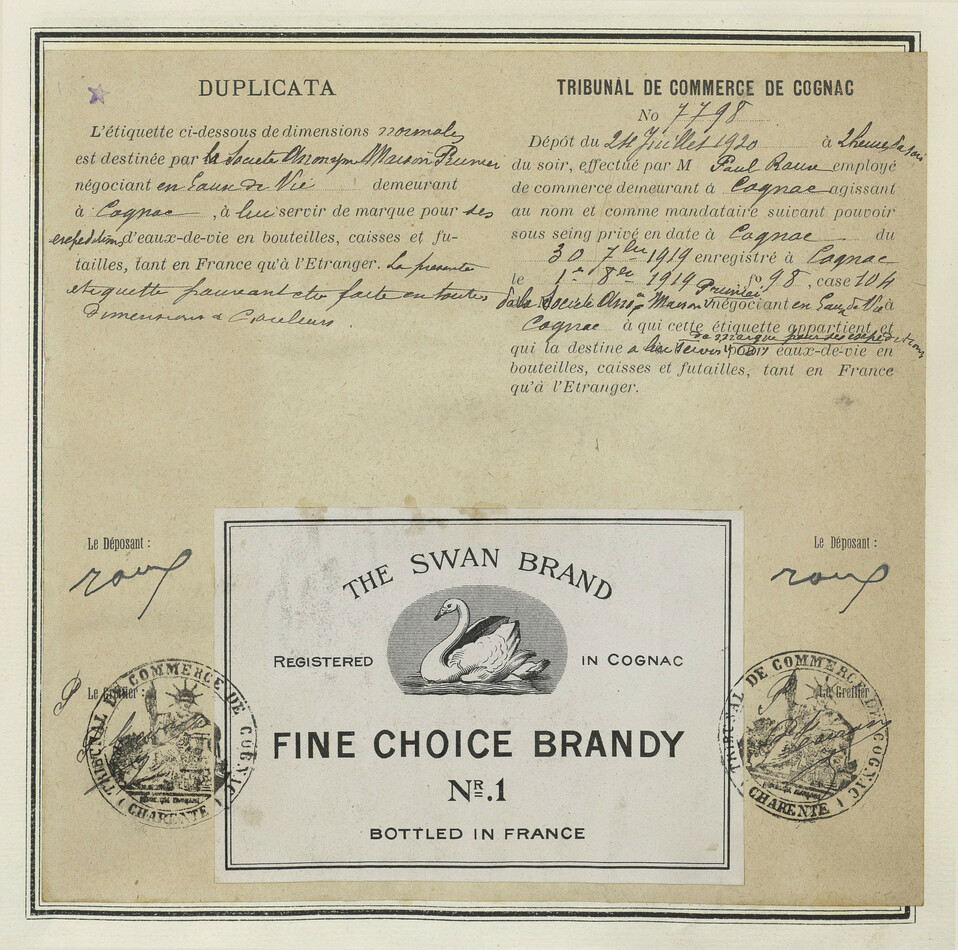 DUPLICATA
L'étiquette ci-dessous de dimensions normales
est destinée par la Societe Anonyme Maison Prunier
négociant en Eaux de Vie demeurant
à Cognac, à lui servir de marque pour ses
expeditions d'eaux-de-vie en bouteilles, caisses et fu-
tailles, tant en France qu'à l'Etranger. La presente
etiquette pouvant etre faite en toutes
dimensions & Couleurs.
TRIBUNAL DE COMMERCE DE COGNAC
No 7798
Dépôt du 24 Juillet 1920 à 2 heures
du soir, effectué par M Paul Roux employé
de commerce demeurant à Cognac agissant
au nom et comme mandataire suivant pouvoir
sous seing privé en date à Cognac du
30 7bre 1919 enregistré à Cognac
le 1er 8bre 1919 fo 98, case 104
de la Societe Anome Maison Prunier négociant en Eaux de Vie à
Cognac à qui cette étiquette appartient et
qui la destine a lui servir de marque pour ses expeditions eaux-de-vie en
bouteilles, caisses et futailles, tant en France
qu'à l'Etranger.
Le Déposant :
roux
Le Déposant :
roux
Le Greffier :
TRIBUNAL DE COMMERCE DE COGNAC
(CHARENTE)
Le Greffier
TRIBUNAL DE COMMERCE DE COGNAC
(CHARENTE)
THE SWAN BRAND
REGISTERED IN COGNAC
FINE CHOICE BRANDY
NR.1
BOTTLED IN FRANCE